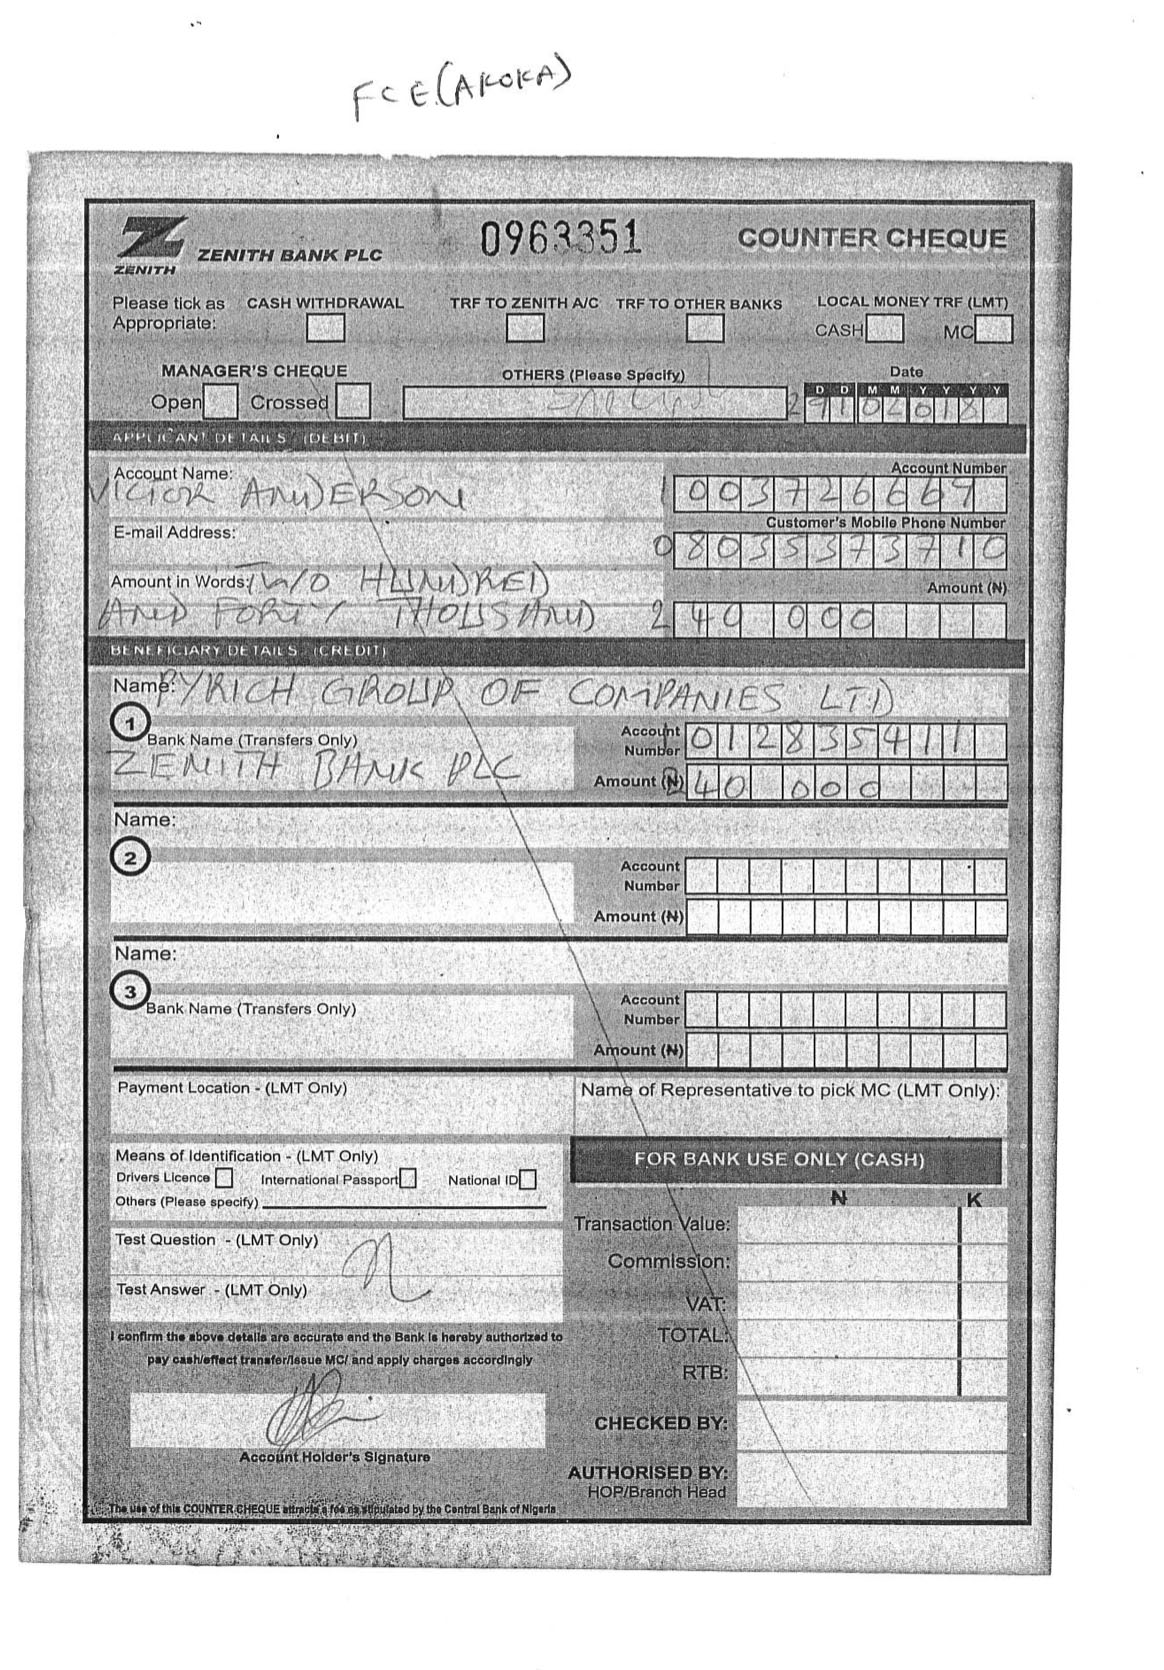 FCE(AKOKA)
ZENITH
ZENITH BANK PLC
0963351
COUNTER CHEQUE
Please tick as Appropriate:
CASH WITHDRAWAL
TRF TO ZENITH A/C
TRF TO OTHER BANKS
LOCAL MONEY TRF (LMT)
CASH
MC
MANAGER'S CHEQUE
Open
Crossed
OTHERS (Please Specify)
Date
D D M M Y Y Y Y
APPLICANT DETAILS (DEBIT)
Account Name:
VICTOR ANDERSON
Account Number
1003726669
E-mail Address:
Customer's Mobile Phone Number
08035373710
Amount in Words: TWO HUNDRED
AND FORTY THOUSAND
Amount (₦)
240 000
BENEFICIARY DETAILS (CREDIT)
Name: PYRICH GROUP OF COMPANIES LTD
1
Bank Name (Transfers Only)
ZENITH BANK PLC
Account Number
012835411
Amount (₦)
240 000
Name:
2
Account Number
Amount (₦)
Name:
3
Bank Name (Transfers Only)
Account Number
Amount (₦)
Payment Location - (LMT Only)
Name of Representative to pick MC (LMT Only):
Means of Identification - (LMT Only)
Drivers Licence
International Passport
National ID
Others (Please specify)
Test Question - (LMT Only)
Test Answer - (LMT Only)
I confirm the above details are accurate and the Bank is hereby authorized to
pay cash/effect transfer/issue MC/ and apply charges accordingly
Account Holder's Signature
The use of this COUNTER CHEQUE attracts a fee as stipulated by the Central Bank of Nigeria
FOR BANK USE ONLY (CASH)
₦ K
Transaction Value:
Commission:
VAT:
TOTAL:
RTB:
CHECKED BY:
AUTHORISED BY:
HOP/Branch Head